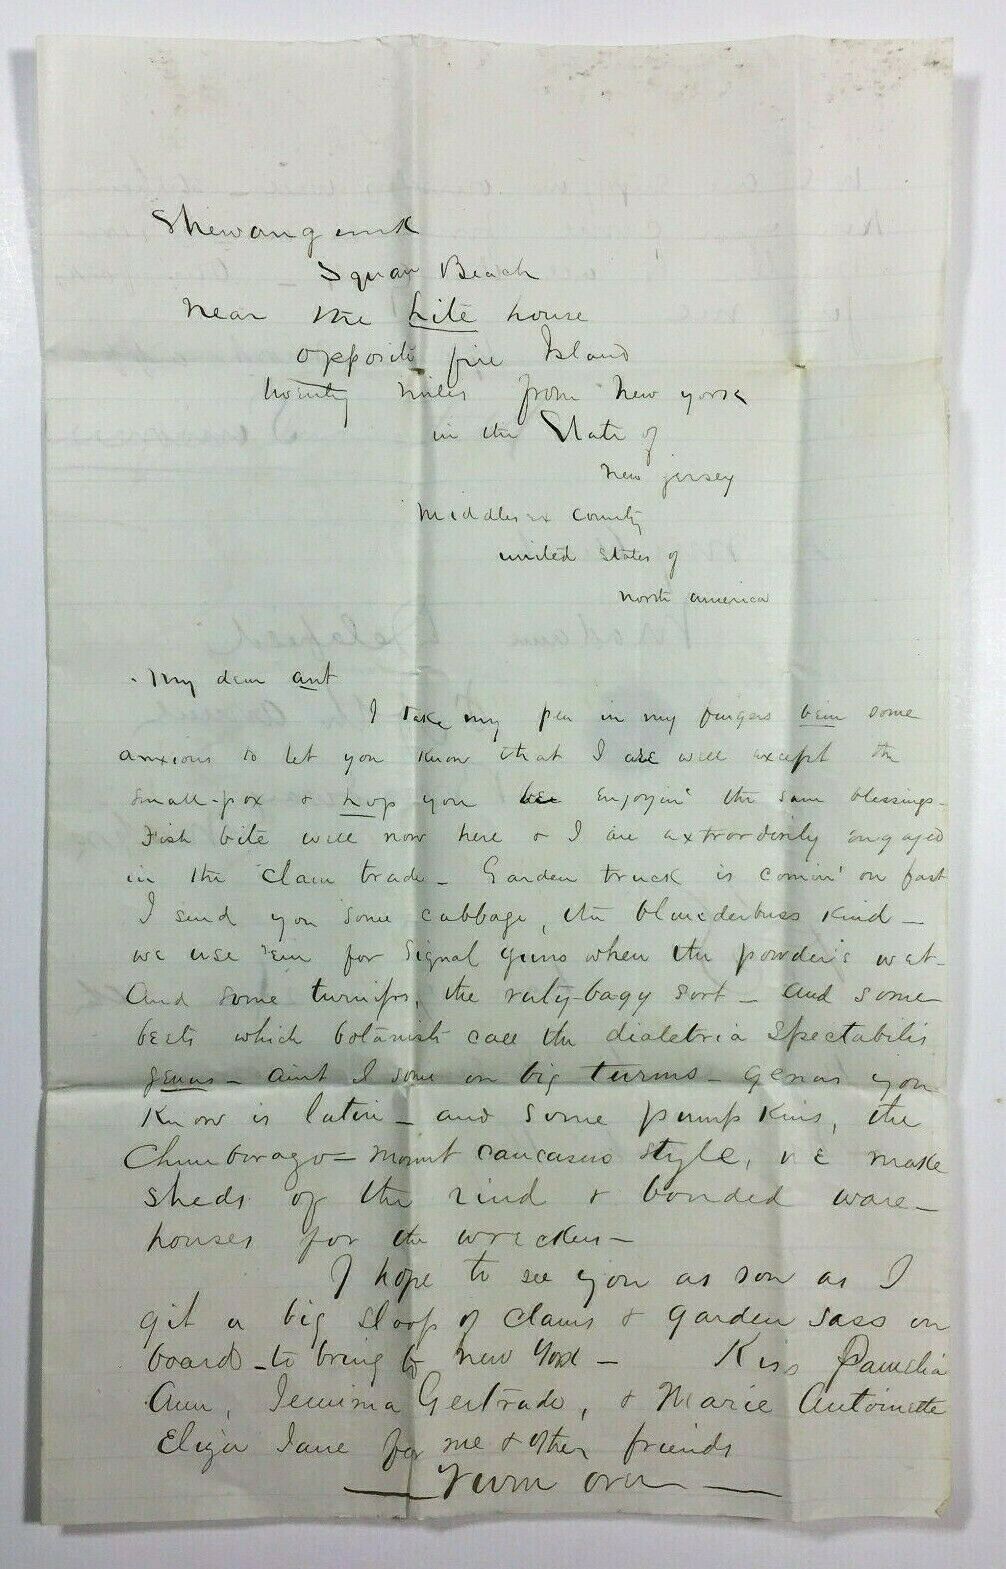 Shewangunk
Squan Beach
near the hite house
opposite fire Island
twenty miles from new york
in the State of
new jersey
Middlesex county
united states of
north america
My dear ant
I take my pen in my fingers bein some
anxious to let you know that I are well except the
small-pox & hop you bee enjoyin' the same blessings-
Fish bite well now here & I are extrordinily engaged
in the clam trade - Garden truck is comin' on fast
I send you some cabbage, the blunderbuss kind -
we use 'em for signal guns when the powder's wet -
and some turnips, the ruty-bagy sort - and some
beets which botanists call the dialetria spectabilis
genus - aint I some on big turms - genus you
know is latin - and some pumpkins, the
Chimborazo - mount caucasus style, we make
sheds of the rind & bonded ware-
houses for the wreckers -
I hope to see you as son as I
git a big sloop of clams & garden sass on
board - to bring to new York - Kiss Pamelia
Ann, Jemima Gertrude, & Marie Antoinette
Eliza Jane for me & other friends
Turn over